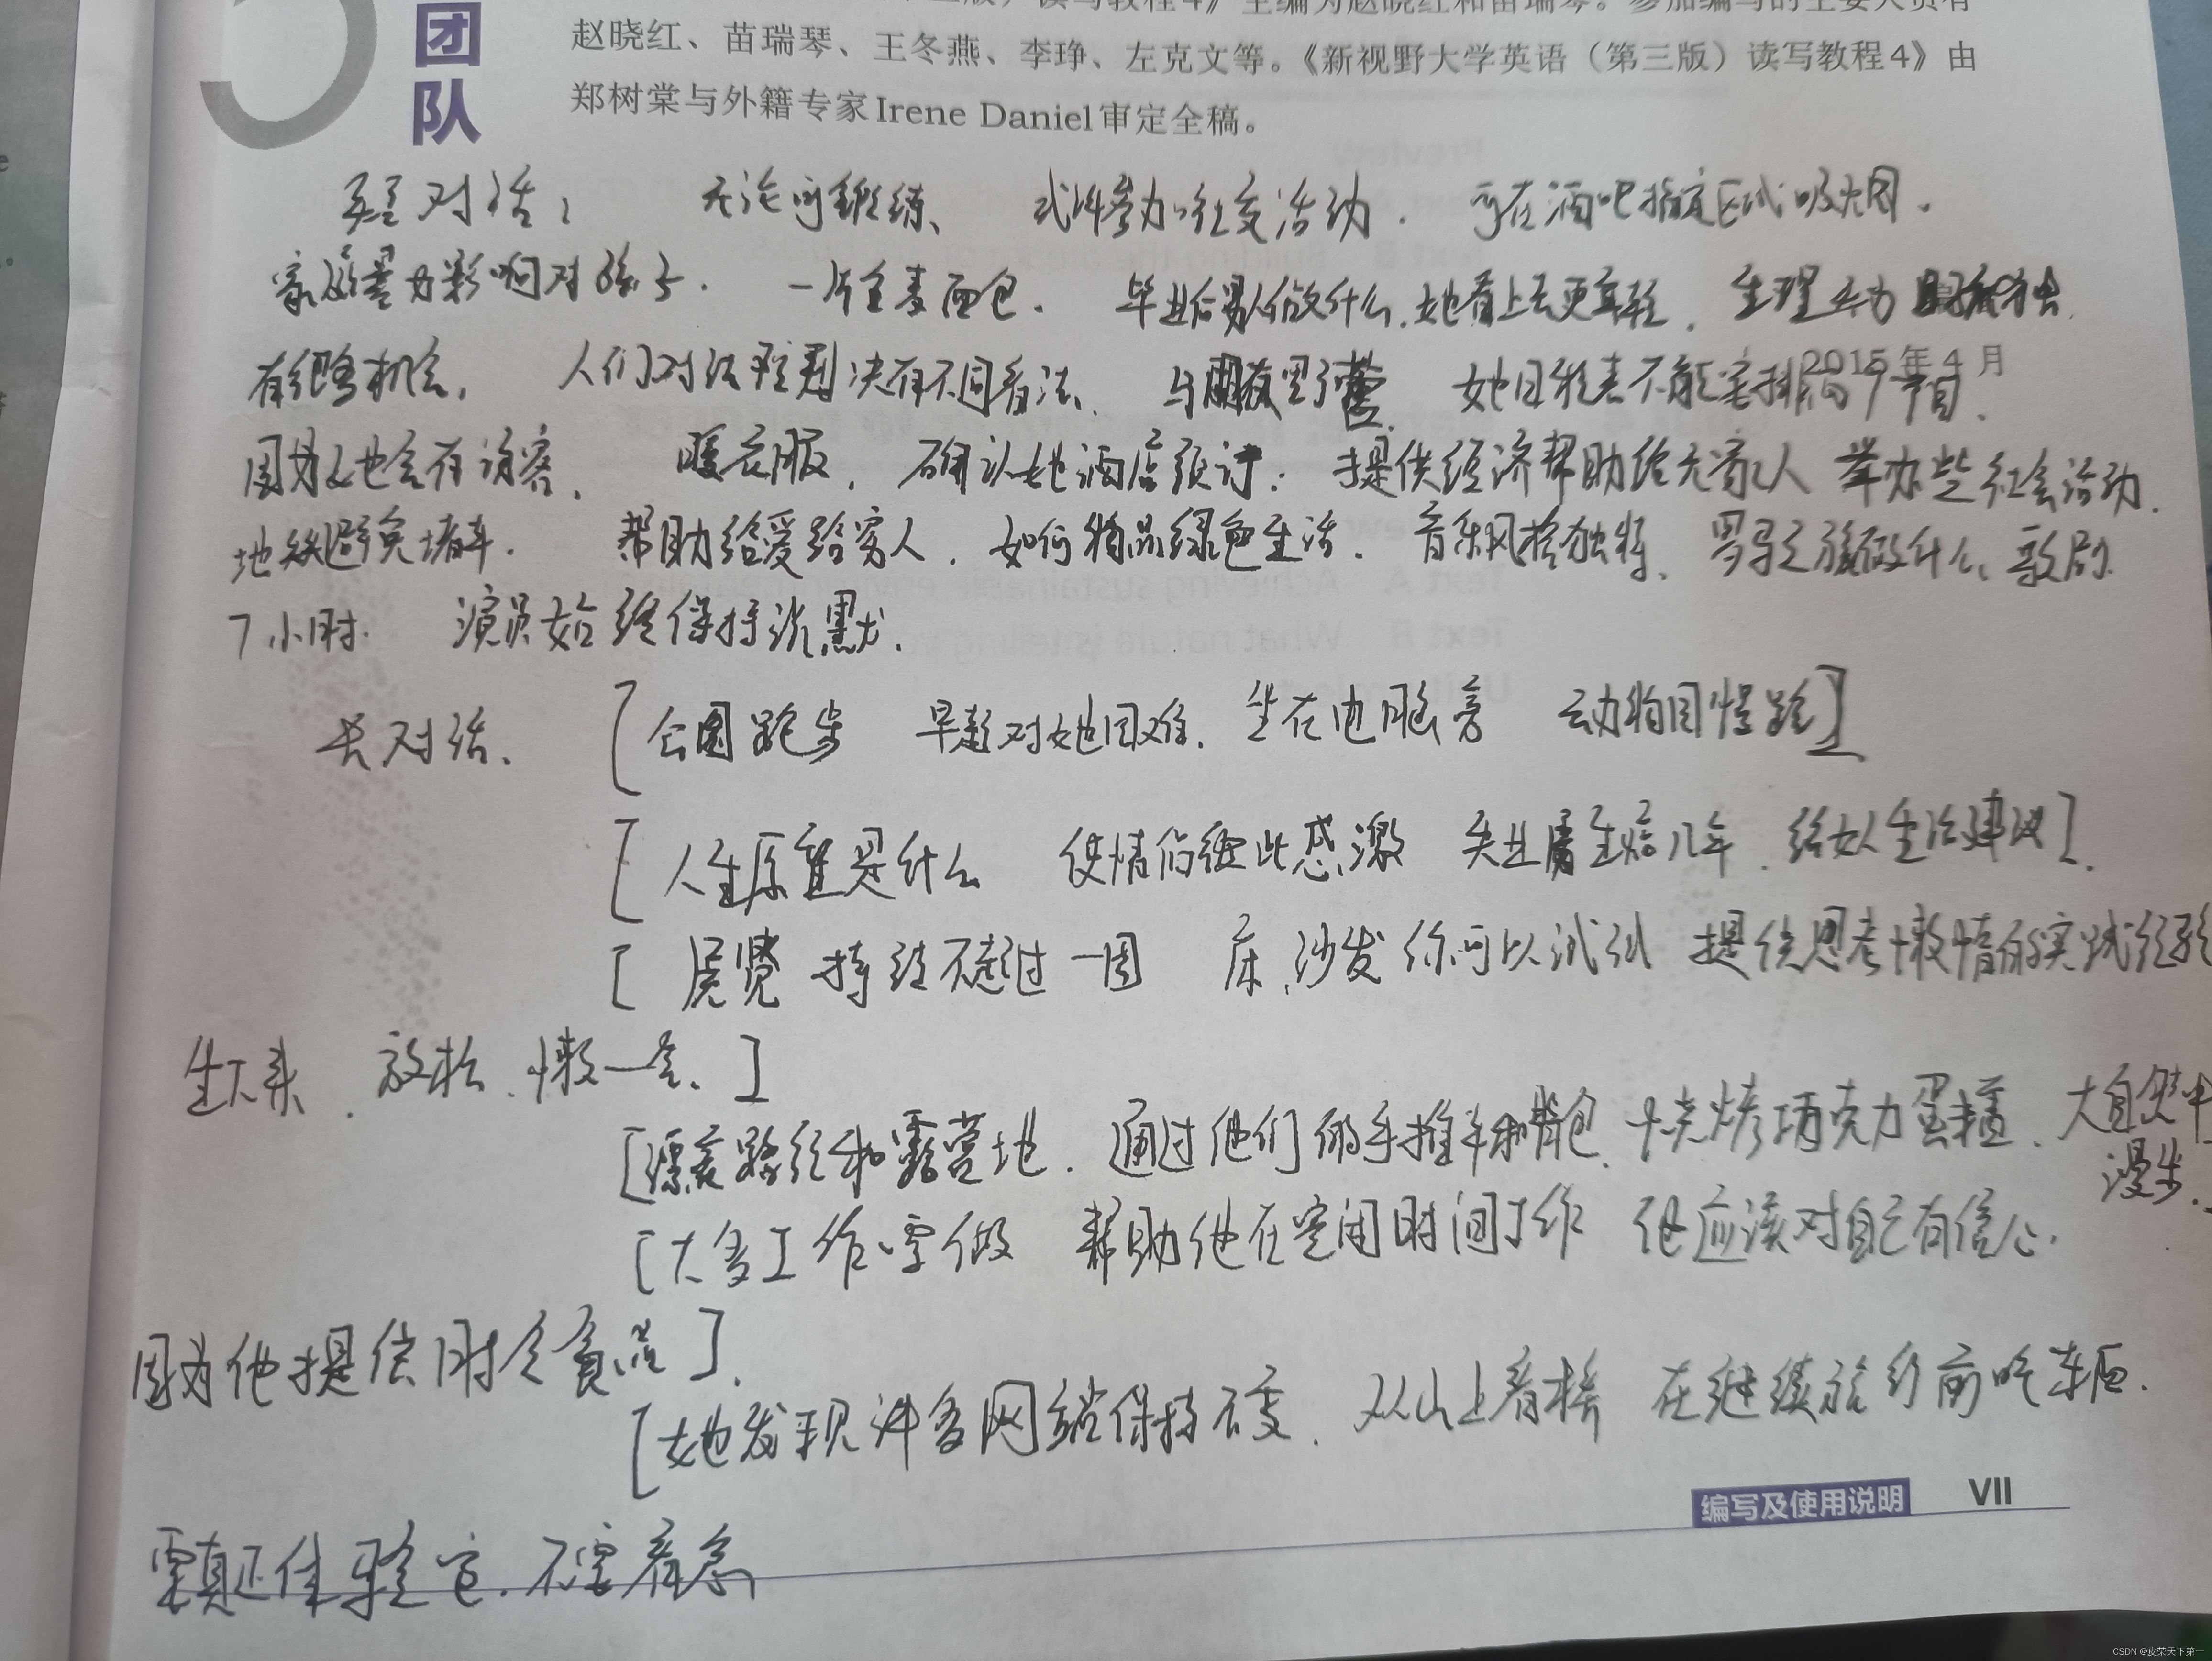 团队
赵晓红、苗瑞琴、王冬燕、李琤、左克文等。《新视野大学英语（第三版）读写教程4》由
郑树棠与外籍专家Irene Daniel审定全稿。
短对话： 无论何锻练、 或许参加社交活动. 可在酒吧指定区域吸烟.
家庭暴力影响对孩子. 一片全麦面包. 毕业后男人做什么.她看上去更年轻. 生理
有细胞机会. 人们对法院判决有不同看法. 与朋友野营. 她日程表不能安排的节目.
2015年4月
因为她会有访客. 暖衣服. 确认她酒店预订. 提供经济帮助给无家人 举办些社会活动.
地铁避免堵车. 帮助给爱给穷人. 如何 绿色生活. 音乐风格独特. 罗马之旅做什么、歌剧
7小时. 演员始终保持沉默.
长对话. [公园跑步 早起对她困难. 坐在电脑旁 动物园慢跑]
[人生原望是什么 使情侣彼此感激 失业 几年. 给女人生活建议].
[展览 持续不超过一周 床.沙发你可以试试 提供思考 懒惰的实践经验
放松.懒一点.]
[漂亮路径和露营地. 通过他们的手推车和背包. 烧烤巧克力蛋糕. 大自然中
漫步.]
[大多工作室做 帮助他在空闲时间工作 他应该对自己有信心.
因为他提供时令食品].
[她发现许多网站保持不变. 从山上看桥 在继续旅行前吃东西.
编写及使用说明 VII
要真正体验它.不要着急
CSDN @皮荣天下第一